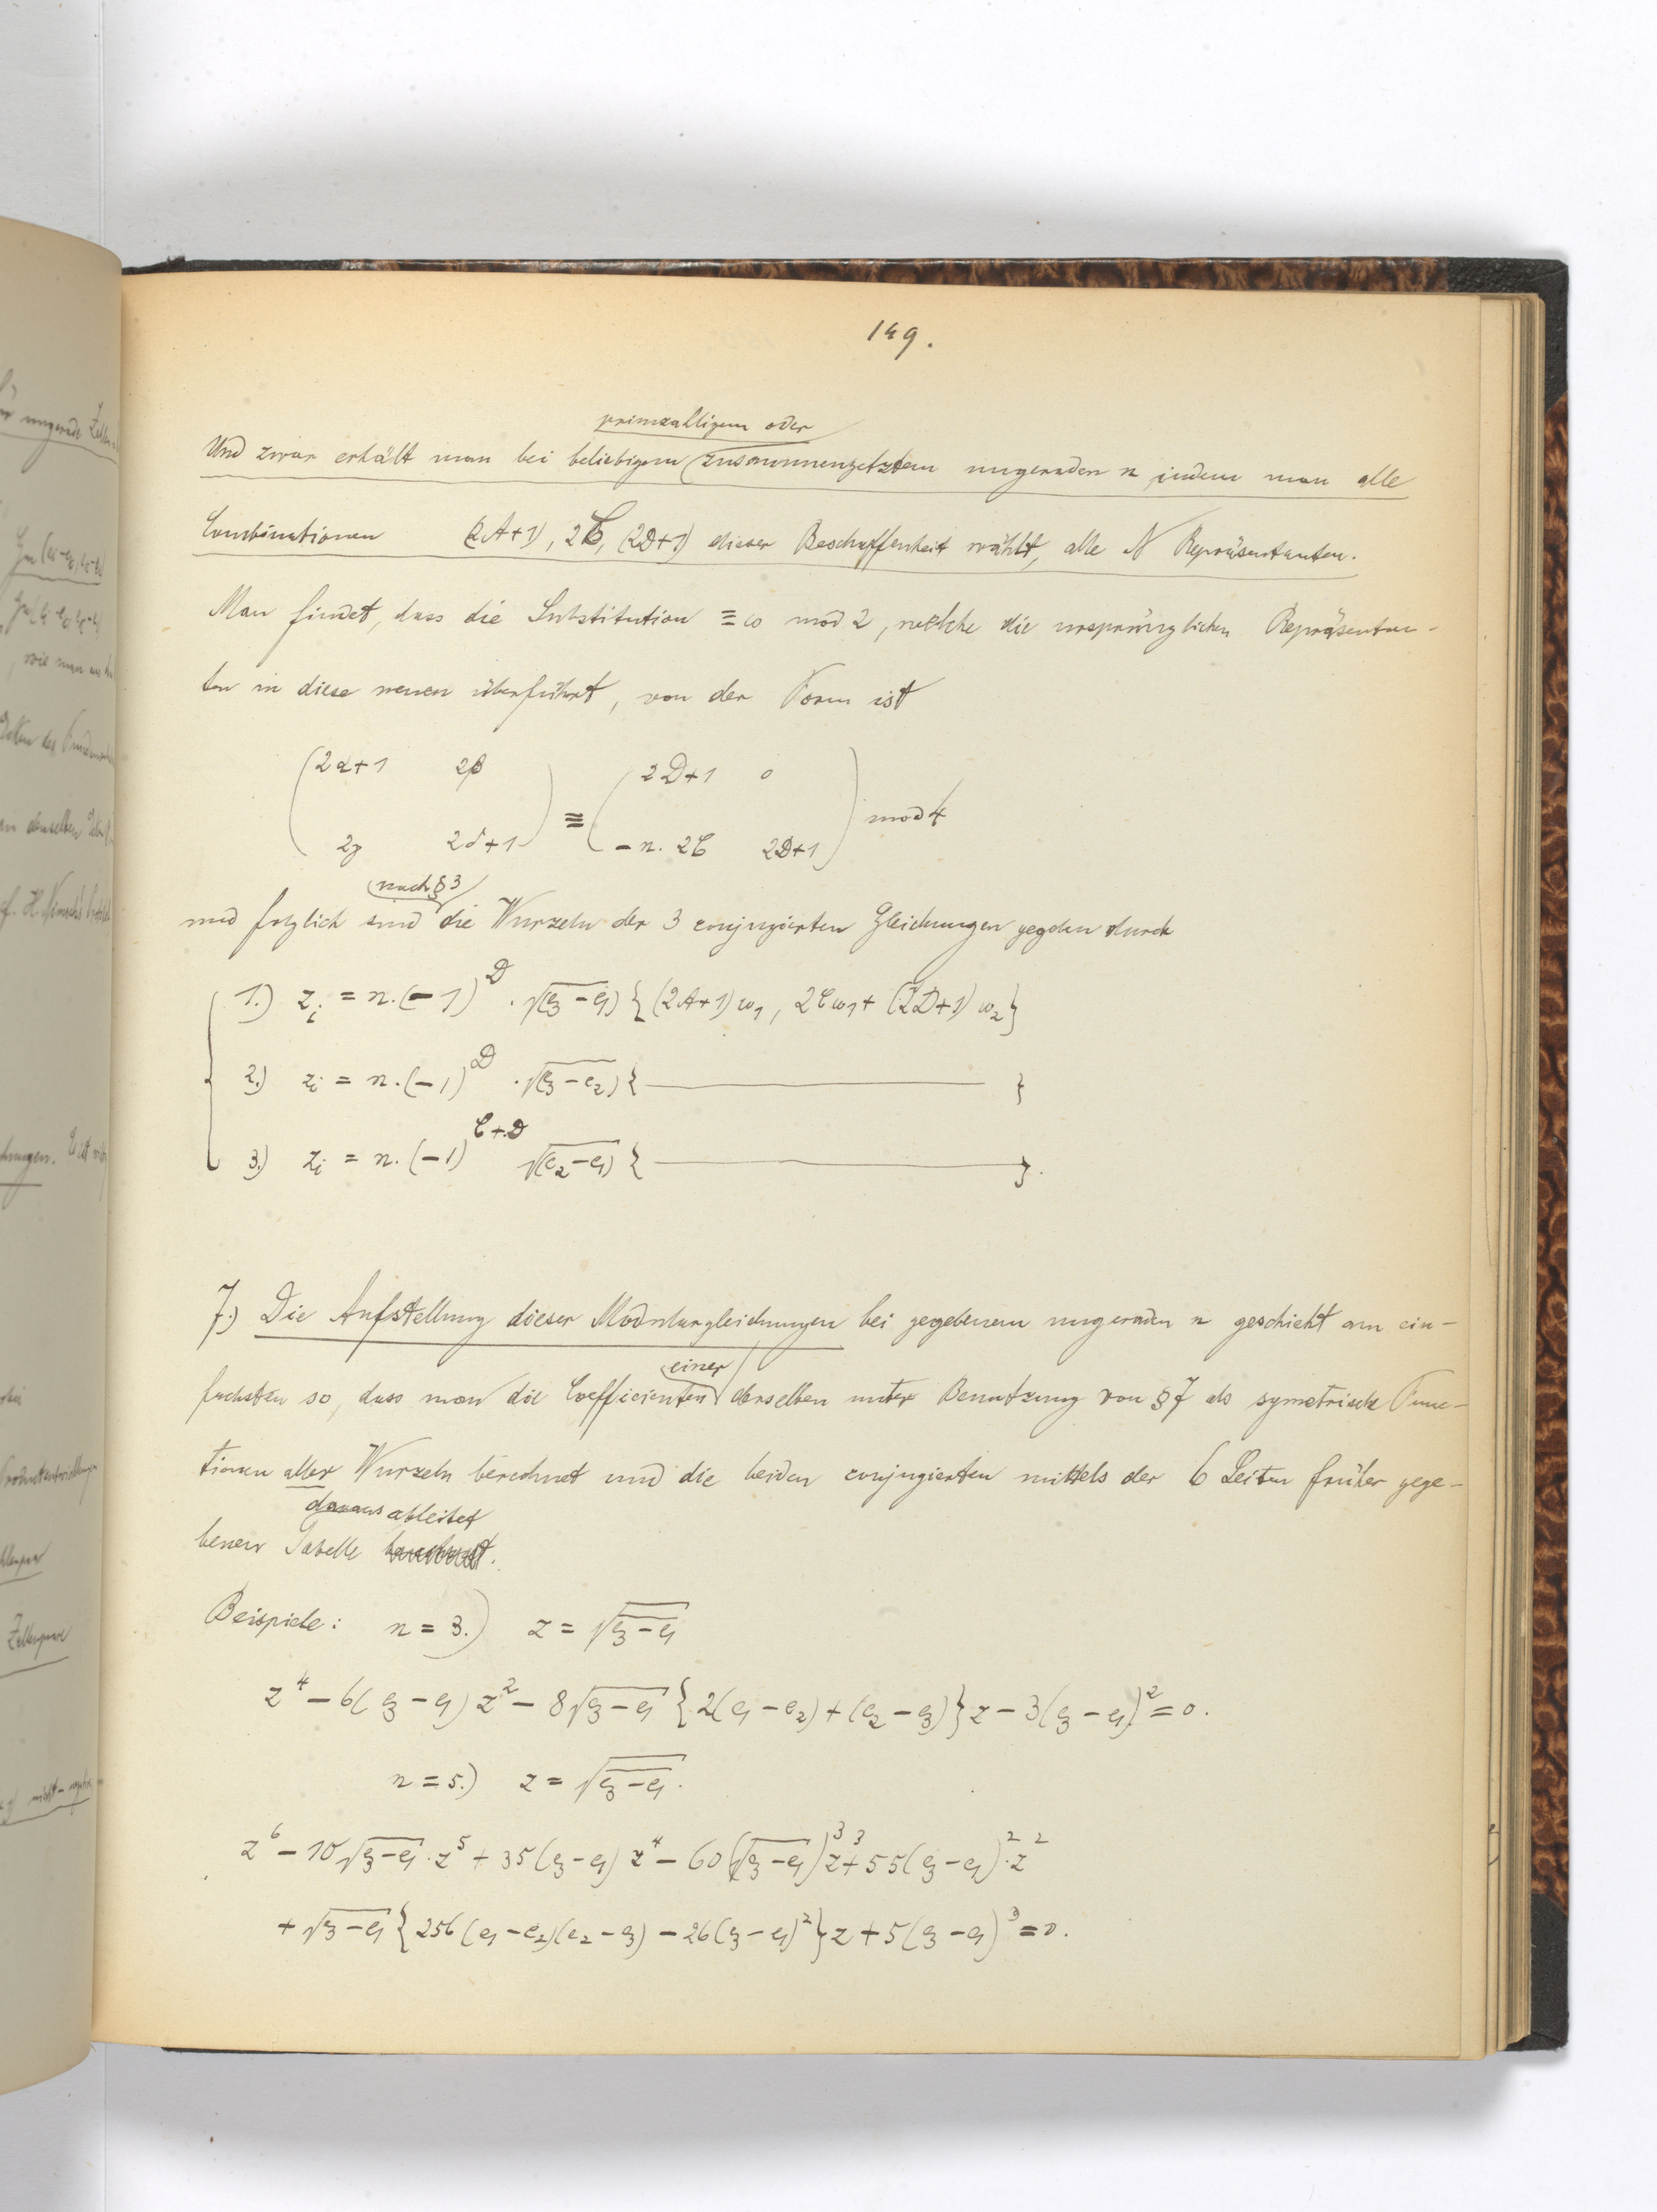 149.
primzahligem oder
Und zwar erhält man bei beliebigem zusammengesetztem ungeraden n, indem man alle
Combinationen (2A+1), 2C, (2D+1) dieser Beschaffenheit wählt, alle N Repräsentanten.
Man findet, dass die Substitution ≡ ω mod 2, welche die ursprünglichen Repräsentan-
ten in diese neuen überführt, von der Form ist
(2α+1 2β) ≡ (2D+1 0) mod 4
(2γ 2δ+1) (-n. 2C 2D+1)
nach § 3
und folglich sind die Wurzeln der 3 conjugierten Gleichungen gegeben durch
1.) z_i = n.(-1)^D . √(e₃-e₁) {(2A+1)ω₁, 2Cω₁+(2D+1)ω₂}
2.) z_i = n.(-1)^D . √(e₃-e₂) { ——— }
3.) z_i = n.(-1)^{C+D} √(e₂-e₁) { ——— }.
7.) Die Aufstellung dieser Modulargleichungen bei gegebenem ungeraden n geschieht am ein-
einer
fachsten so, dass man die Coefficienten derselben unter Benutzung von § 7 als symetrische Func-
tionen aller Wurzeln berechnet und die beiden conjugierten mittels der 6 Seiten früher gege-
daraus ableitet
benen Tabelle berechnet.
Beispiele: n = 3.) z = √e₃-e₁
z⁴ - 6(e₃-e₁)z² - 8√e₃-e₁ {2(e₁-e₂)+(e₂-e₃)}z - 3(e₃-e₁)² = 0.
n = 5.) z = √e₃-e₁.
z⁶ - 10√e₃-e₁.z⁵ + 35(e₃-e₁)z⁴ - 60(√e₃-e₁)³z³ + 55(e₃-e₁)².z²
+ √e₃-e₁ {256(e₁-e₂)(e₂-e₃) - 26(e₃-e₁)²}z + 5(e₃-e₁)³ = 0.